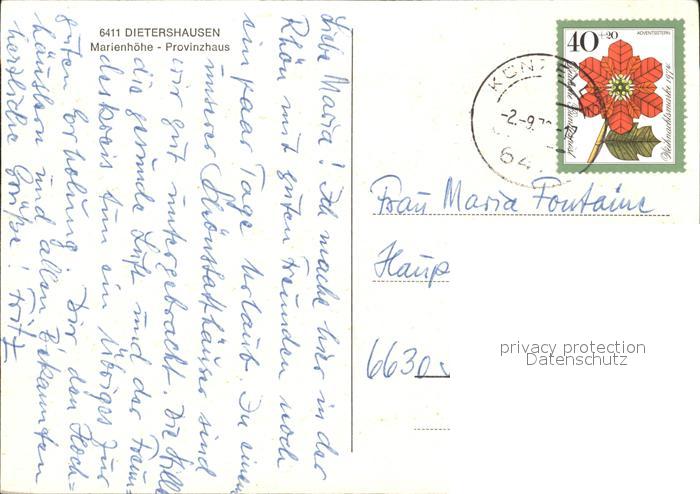 6411 DIETERSHAUSEN
Marienhöhe - Provinzhaus
Liebe Maria! Ich mache hier in der
Rhön mit guten Freunden noch
ein paar Tage Urlaub. In einem
unserer Schönstatthäuser sind
wir gut untergebracht. Die Stille
die gesunde Luft und der Freun=
deskreis tun ein Übriges zur
guten Erholung. Dir, den Hoch=
häuslern und allen Bekannten
herzliche Grüße! Fritz
40+20
ADVENTSSTERN
Deutsche Bundespost
Weihnachtsmarke 1974
-2.-9.
64
Frau Maria Fontaine
Haup
6630
privacy protection
Datenschutz